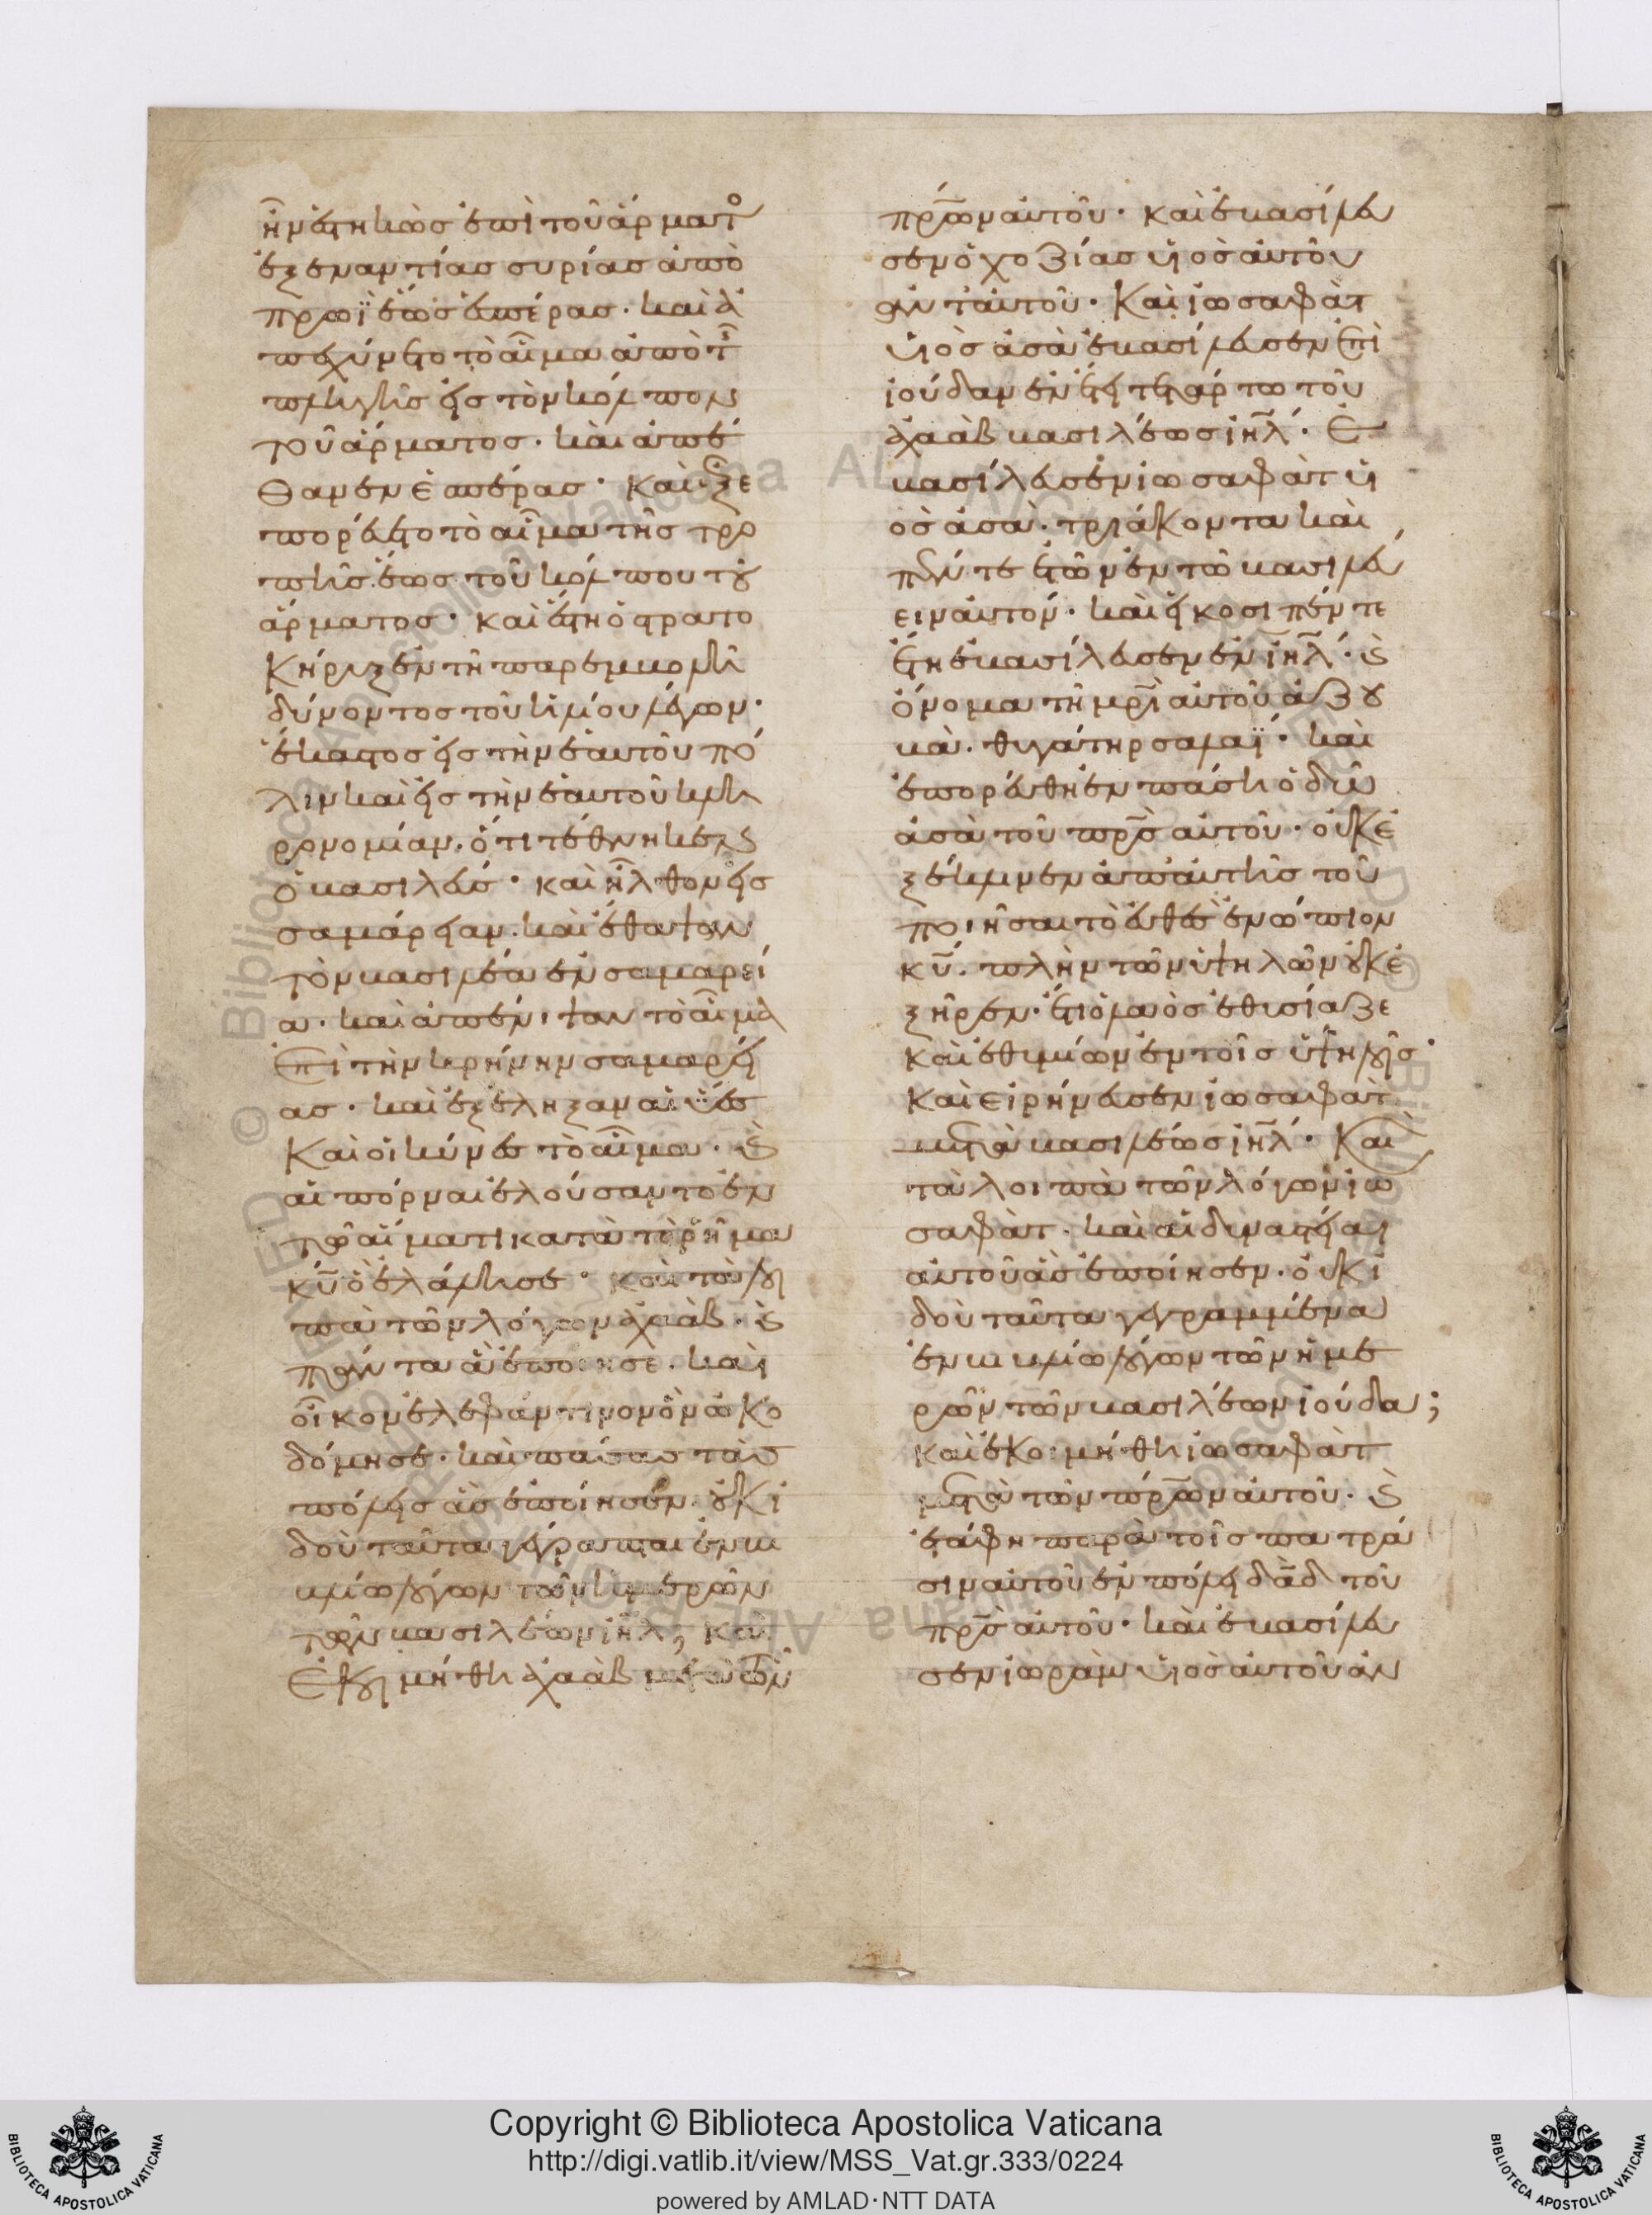 ἦν ἑστηκὼς ἐπὶ τοῦ ἅρματο
ἐξεναντίας συρίας ἀπὸ
πρωῒ ἕως ἑσπέρας· καὶ ἀ
πεχύνετο τὸ αἷμα ἀπὸ τῆ
πληγῆς εἰς τὸν κόλπον
τοῦ ἅρματος· καὶ ἀπέ
θανεν ἑσπέρας· καὶ ἐξε
πορεύετο τὸ αἷμα τῆς τρο
πῆς ἕως τοῦ κόλπου τοῦ
ἅρματος· καὶ ἔστη ὁ στρατο
κήρυξ ἐν τῆ παρεμβολῆ
δύνοντος τοῦ ἡλίου λέγων·
ἕκαστος εἰς τὴν ἑαυτοῦ πό
λιν καὶ εἰς τὴν ἑαυτοῦ κλη
ρονομίαν· ὅτι τέθνηκεν
ὁ βασιλεύς· καὶ ἦλθον εἰς
σαμάρειαν· καὶ ἔθαψαν
τὸν βασιλέα ἐν σαμαρεί
α· καὶ ἀπένιψαν τὸ αἷμα
ἐπὶ τὴν κρήνην σαμαρεί
ας· καὶ ἐξέληξαν αἱ ὕες
καὶ οἱ κύνες τὸ αἷμα· καὶ
αἱ πόρναι ἐλούσαντο ἐν
τῶ αἵματι κατὰ τὸ ῥῆμα
κυ̅ ὃ ἐλάλησε· καὶ τὰ λοι
πὰ τῶν λόγων ἀχαάβ· καὶ
πάντα ἃ ἐποίησε· καὶ
οἶκον ἐλεφάντινον ὃν ὠκο
δόμησε· καὶ πάσας τὰς
πόλεις ἃς ἐποίησεν· οὐκ ἰ
δοὺ ταῦτα γέγραπται ἐν βι
βλίω λόγων τῶν ἡμερῶν
τῶν βασιλέων ιη̅λ; καὶ
ἐκοιμήθη ἀχαὰβ μετὰ τῶν
πρω̅ν αὐτοῦ· καὶ ἐβασίλευ
σεν ὀχοζίας υἱὸς αὐτοῦ
ἀντ᾽ αὐτοῦ· Καὶ ἰωσαφὰτ
υἱὸς ἀσὰ ἐβασίλευσεν ἐπὶ
ἰούδαν ἐν ἔτει τετάρτω τοῦ
ἀχαὰβ βασιλέως ιη̅λ· Ἐ
βασίλευσεν ἰωσαφὰτ υἱ
ὸς ἀσὰ· τριάκοντα καὶ
πέντε ἐτῶν ἐν τῶ βασιλεύ
ειν αὐτόν· καὶ εἴκοσι πέντε
ἔτη ἐβασίλευσεν ἐν ιη̅λ· καὶ
ὄνομα τῆ μρι̅ αὐτοῦ ἀζου
βὰ· θυγάτηρ σαλαῒ· καὶ
ἐπορεύθη ἐν πάση ὁδῶ
ἀσὰ τοῦ πρς̅ αὐτοῦ· οὐκ ἐ
ξέκλινεν ἀπ᾽ αὐτῆς τοῦ
ποιῆσαι τὸ εὐθὲς ἐνώπιον
κυ̅· πλὴν τῶν ὑψηλῶν οὐκ ἐ
ξῆρεν· ἔτι ὁ λαὸς ἐθυσίαζε
καὶ ἐθυμίων ἐν τοῖς ὑψηλοῖς·
καὶ εἰρήνευσεν ἰωσαφὰτ
μετὰ βασιλέως ιη̅λ· Καὶ
τὰ λοιπὰ τῶν λόγων ἰω
σαφὰτ· καὶ αἱ δυναστεῖαι
αὐτοῦ ἃς ἐποίησεν· οὐκ ἰ
δοὺ ταῦτα γεγραμμένα
ἐν βιβλίω λόγων τῶν ἡμε
ρῶν τῶν βασιλέων ἰούδα;
καὶ ἐκοιμήθη ἰωσαφὰτ
μετὰ τῶν πρω̅ν αὐτοῦ· καὶ
ἐτάφη παρὰ τοῖς πατρά
σιν αὐτοῦ ἐν πόλει δα̅δ τοῦ
πρς̅ αὐτοῦ· καὶ ἐβασίλευ
σεν ἰωρὰμ υἱὸς αὐτοῦ ἀν
Copyright © Biblioteca Apostolica Vaticana
http://digi.vatlib.it/view/MSS_Vat.gr.333/0224
powered by AMLAD·NTT DATA
BIBLIOTECA APOSTOLICA VATICANA
BIBLIOTECA APOSTOLICA VATICANA